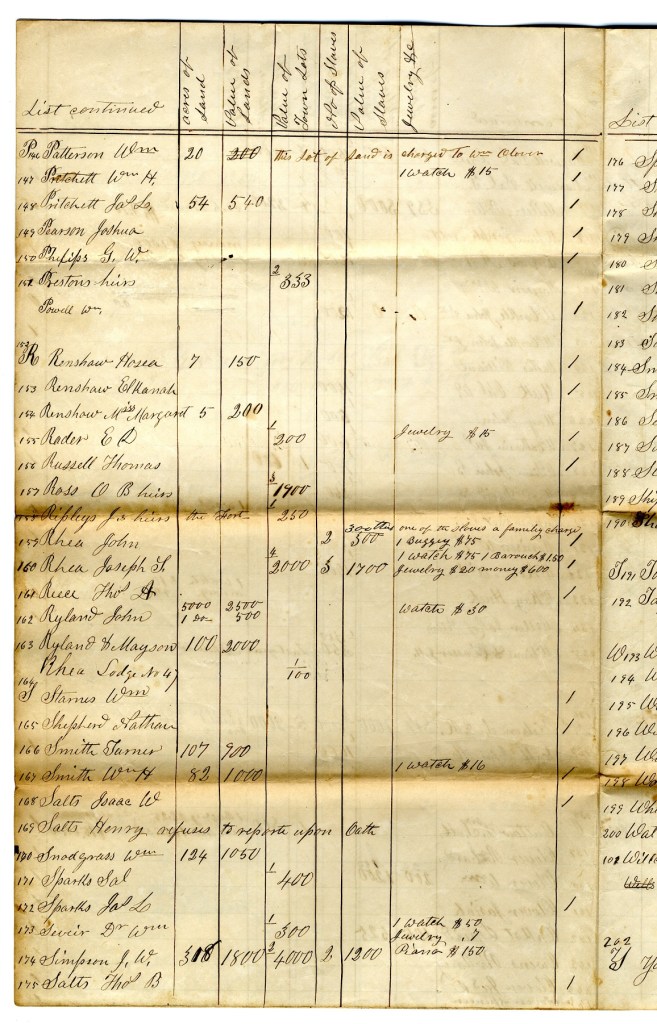 List continued acres of Land Value of Lands Value of Town Lots No of Slaves Value of Slaves Jewelry &c
P 146 Patterson Wm 20 200 this lot of Land is charged to Wm Clover 1
147 Pritchett Wm H, 1 watch $15 1
148 Pritchett Jas L, 54 540 1
149 Pearson Joshua 1
150 Phelips G. W. 1
151 Prestons heirs 2 333
Powell Wm, 1
152
R Renshaw Hosea 7 150 1
153 Renshaw Elkanah
154 Renshaw Miss Margaret 5 200
155 Rader E D 1 200 Jewelry $15 1
156 Russell Thomas 1
157 Ross O B heirs 3 1900
158 Ripleys J. s heirs the Fort 1 250
one of the Slaves a family charge
159 Rhea John 2 500 1 Buggey $75 1
1 watch $75 1 Barouch $150
160 Rhea Joseph S. 4 2000 3 1700 Jewelry $20 money $600 1
161 Reece Thos
5000 2500
162 Ryland John 1 do 500 watch $30
163 Ryland & Mayson 100 2000
Rhea Lodge No 47 1/100
164
S Starnes Wm 1
165 Shepherd Nathan 1
166 Smith Turner 107 900
167 Smith Wm H 82 1000 1 watch $16 1
168 Salts Isaac W 1
169 Salts Henry refuses to reporte upon Oath
170 Snodgrass Wm 124 1050
171 Sparks Sal 1 400
172 Sparks Jas L 1
1 watch $50
173 Sevier Dr Wm 1 300 Jewelry .7
174 Simpson J, W. 318 1800 2 4000 2 1200 Piano $150
175 Salts Thos B 1
List
176 Sp
177 S
178 S
179 Sn
180 S
181 S
182 S
183 S
184 Sn
185 Sn
186 S
187 S
188 S
189 Shi
190 Sh
T 191 Ta
192 Ta
W 193 W
194 W
195 W
196 W
197 W
198 W
199 Wh
200 Wat
102 Wil
Wells
202
Y